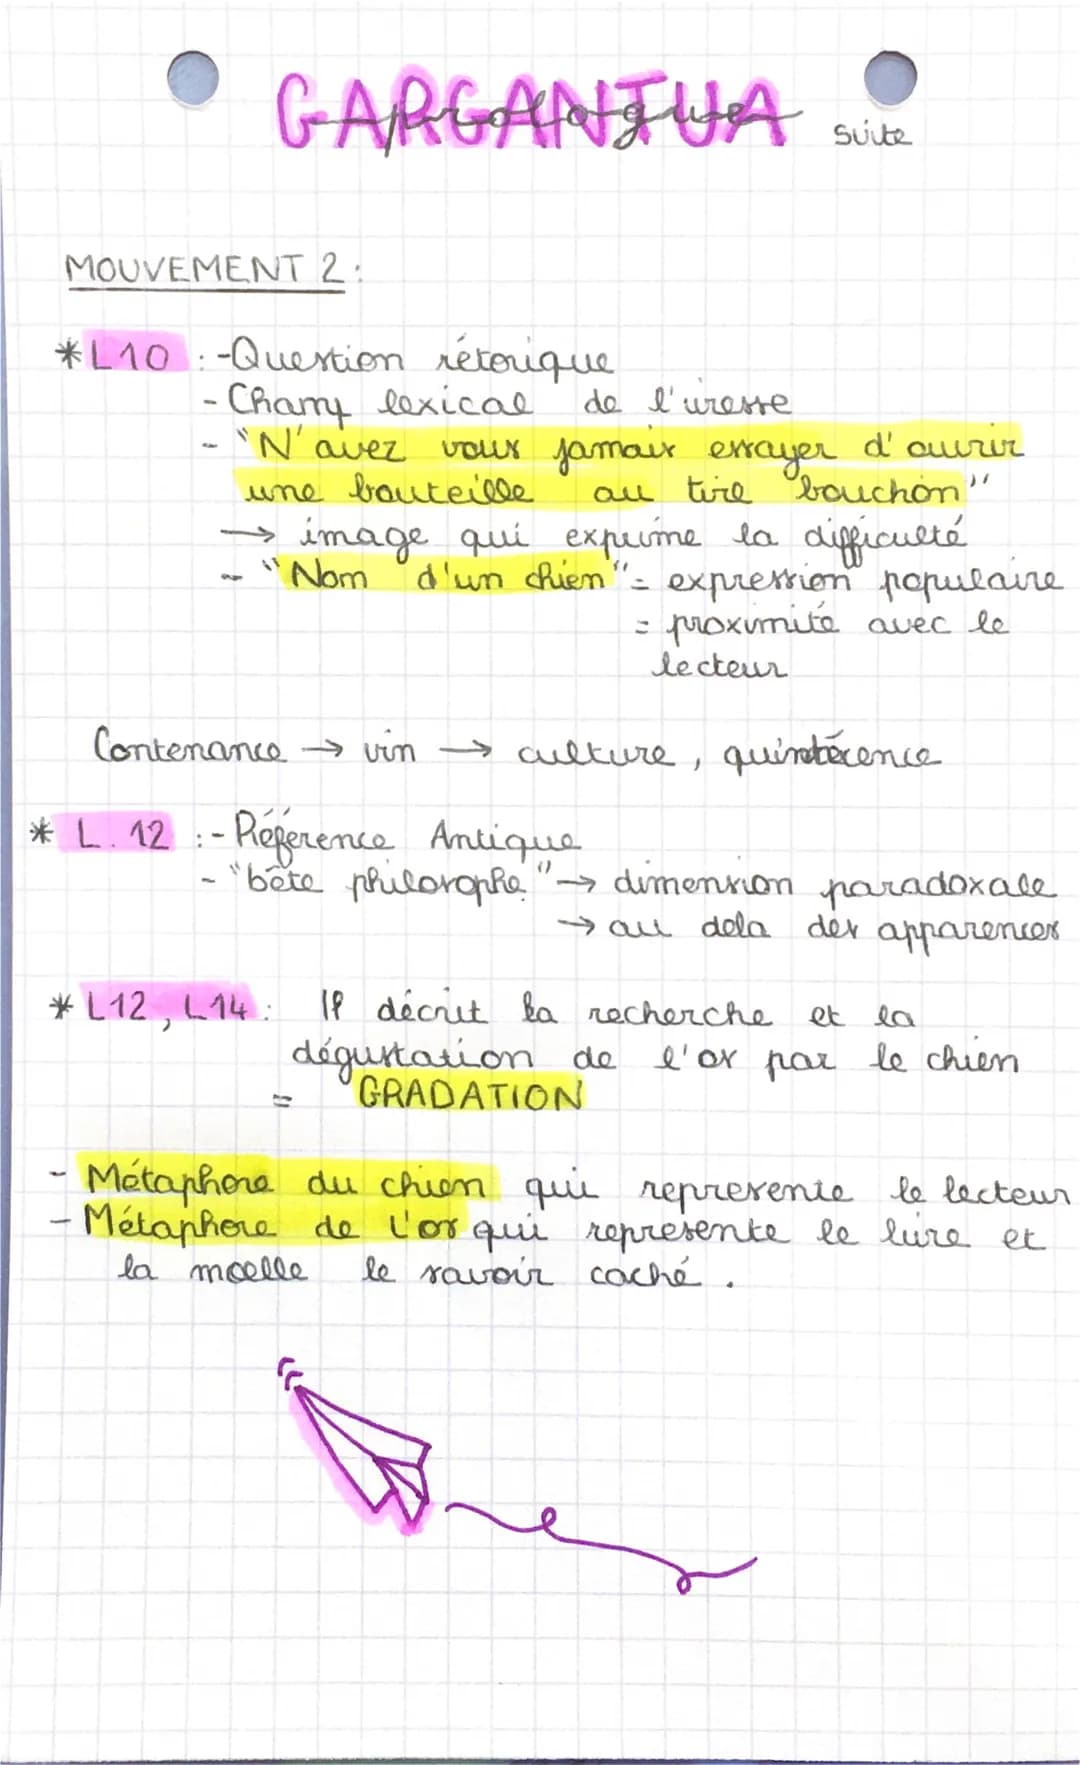 GARGANTUA
prologue suite
MOUVEMENT 2:
*L10 : -Question rétorique
- Champ lexical de l'ivresse
- "N'avez vous jamais essayer d'ouvrir
une bouteille au tire bouchon"
→ image qui exprime la difficulté
- "Nom d'un chien" = expression populaire
= proximité avec le
lecteur
Contenance → vin → culture, quintécence
* L.12 : - Référence Antique
- "bête philosophe" → dimension paradoxale
→ au dela des apparences
* L12, L14 : Il décrit la recherche et la
dégustation de l'os par le chien
= GRADATION
- Métaphore du chien qui represente le lecteur
- Métaphore de l'os qui represente le livre et
la moelle le savoir caché.